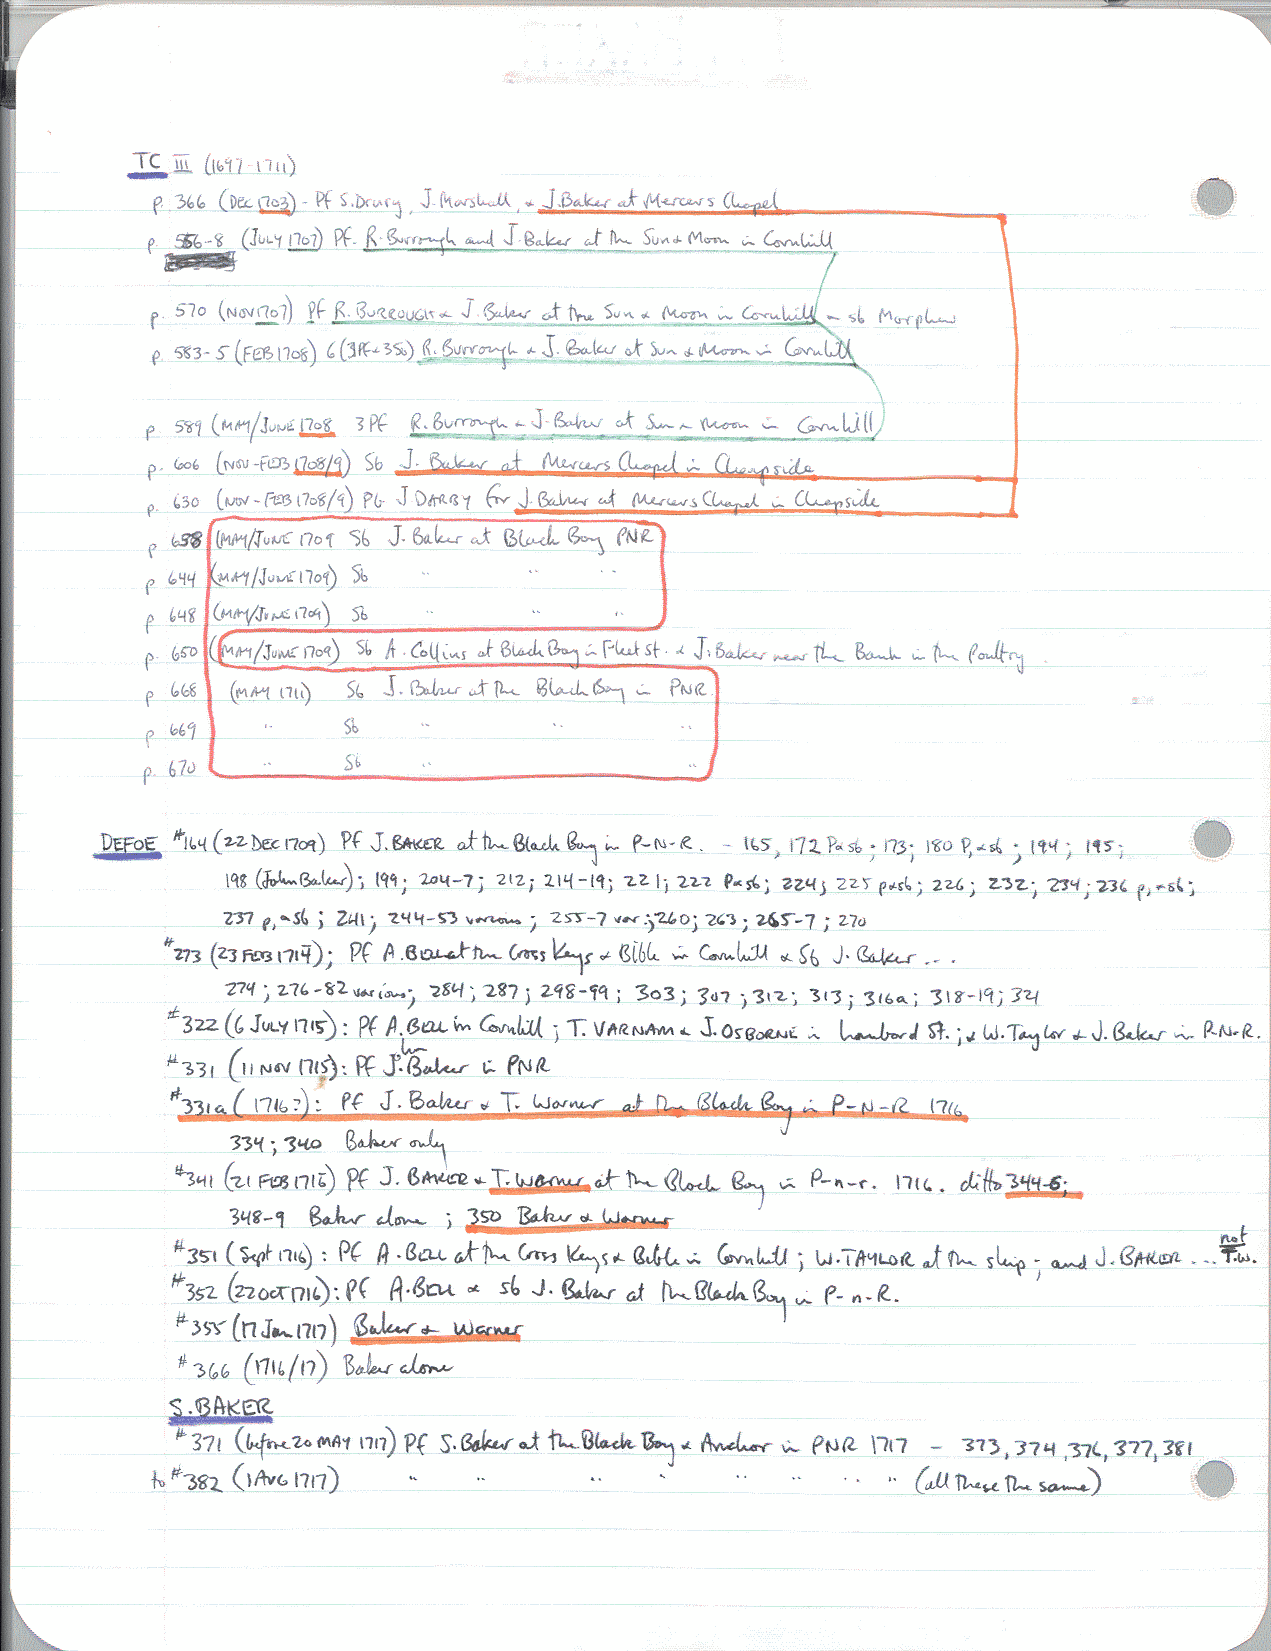 TC III (1697-1711)
p. 366 (DEC 1703) - Pf S. Drury, J. Marshall, & J. Baker at Mercers Chapel
p. 556-8 (JULY 1707) Pf. R. Burrough and J. Baker at the Sun & Moon in Cornhill
p. 570 (NOV 1707) Pf R. BURROUGH & J. Baker at the Sun & Moon in Cornhill & sb Morphew
p. 583-5 (FEB 1708) 6 (3Pf & 3Sb) R. Burrough & J. Baker at Sun & Moon in Cornhill
p. 589 (MAY/JUNE 1708 3 Pf R. Burrough & J. Baker at Sun & Moon in Cornhill
p. 606 (NOV-FEB 1708/9) Sb J. Baker at Mercers Chapel in Cheapside
p. 630 (NOV-FEB 1708/9) PG J DARBY for J. Baker at Mercers Chapel in Cheapside
p 638 (MAY/JUNE 1709 Sb J. Baker at Black Boy PNR
p 644 (MAY/JUNE 1709) Sb " " "
p 648 (MAY/JUNE 1709) Sb " " "
p. 650 (MAY/JUNE 1709) Sb A. Collins at Black Boy in Fleet St. & J. Baker near the Bank in the Poultry
p 668 (MAY 1711) Sb J. Baker at the Black Boy in PNR.
p 669 " Sb " " "
p. 670 " Sb " "
DEFOE #164 (22 DEC 1709) Pf J. BAKER at the Black Boy in P-N-R. - 165, 172 P & sb; 173; 180 P, & sb; 194; 195;
198 (John Baker); 199; 204-7; 212; 214-19; 221; 222 P & sb; 224; 225 p & sb; 226; 232; 234; 236 p, & sb;
237 p, & sb; 241; 244-53 various; 255-7 var.; 260; 263; 265-7; 270
#273 (23 FEB 1714); Pf A. BELL at the Cross Keys & Bible in Cornhill & Sb J. Baker ...
274; 276-82 various; 284; 287; 298-99; 303; 307; 312; 313; 316a; 318-19; 321
#322 (6 JULY 1715): Pf A. BELL in Cornhill; T. VARNAM & J. OSBORNE in Lombard St.; & W. Taylor & J. Baker in P-N-R.
#331 (11 NOV 1715): Pf John Baker in PNR
#331a (1716?): Pf J. Baker & T. Warner at the Black Boy in P-N-R 1716
334; 340 Baker only
#341 (21 FEB 1716) Pf J. BAKER & T. Warner at the Black Boy in P-n-r. 1716. ditto 344-6;
348-9 Baker alone; 350 Baker & Warner
#351 (Sept 1716): Pf A. BELL at the Cross Keys & Bible in Cornhill; W. TAYLOR at the ship; and J. BAKER ... not T.W.
#352 (22 OCT 1716): Pf A. BELL & sb J. Baker at the Black Boy in P-n-R.
#355 (17 Jan 1717) Baker & Warner
#366 (1716/17) Baker alone
S. BAKER
#371 (before 20 MAY 1717) Pf S. Baker at the Black Boy & Anchor in PNR 1717 - 373, 374, 376, 377, 381
to #382 (1 AUG 1717) " " " " " " " " (all these the same)